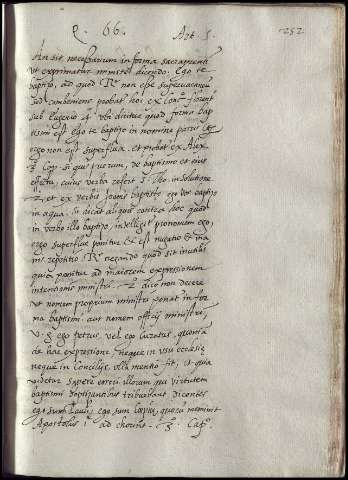 q. 66. Art. 5. 252
An sit necessarium in forma sacramenti
ut exprimatur minister dicendo. Ego te
baptizo, ad quod Rº non esse supervacaneum
sub Eugenio 4º ubi dicitur quod forma bap
tismi est ego te baptizo in nomine patris etc.
ergo non est superflua. et probat ex Alex.
3. Cap. si quis puerum, de baptismo et eius
effectu, cuius verba refert S. Tho. in solutione
2. et ex verbis joanis baptiste ego vos baptizo
in aqua. Si dicat aliquis contra hoc quod
in verbo illo baptizo, intelligit pronomen ego,
ergo superflue ponitur et est nugatio et ina
nis repetitio. Rº negando quod sit inutilis
quia ponitur ad maiorem expressionem
intentionis ministri. dico non decere
ut nomen proprium ministri ponat in for
ma baptismi aut nomen officij ministri,
v. g. ego petrus, vel ego Curatus, quoniam
de hac expressione neque in usu ecclesię
neque in Concilijs ulla mentio fit, et quia
videtur sapere errorem illorum qui virtutem
baptismi baptizantibus tribuebant dicentes
ego sum Pauli, ego sum cephę, quorum meminit
Apostolus 1ª ad chorint. Cap.